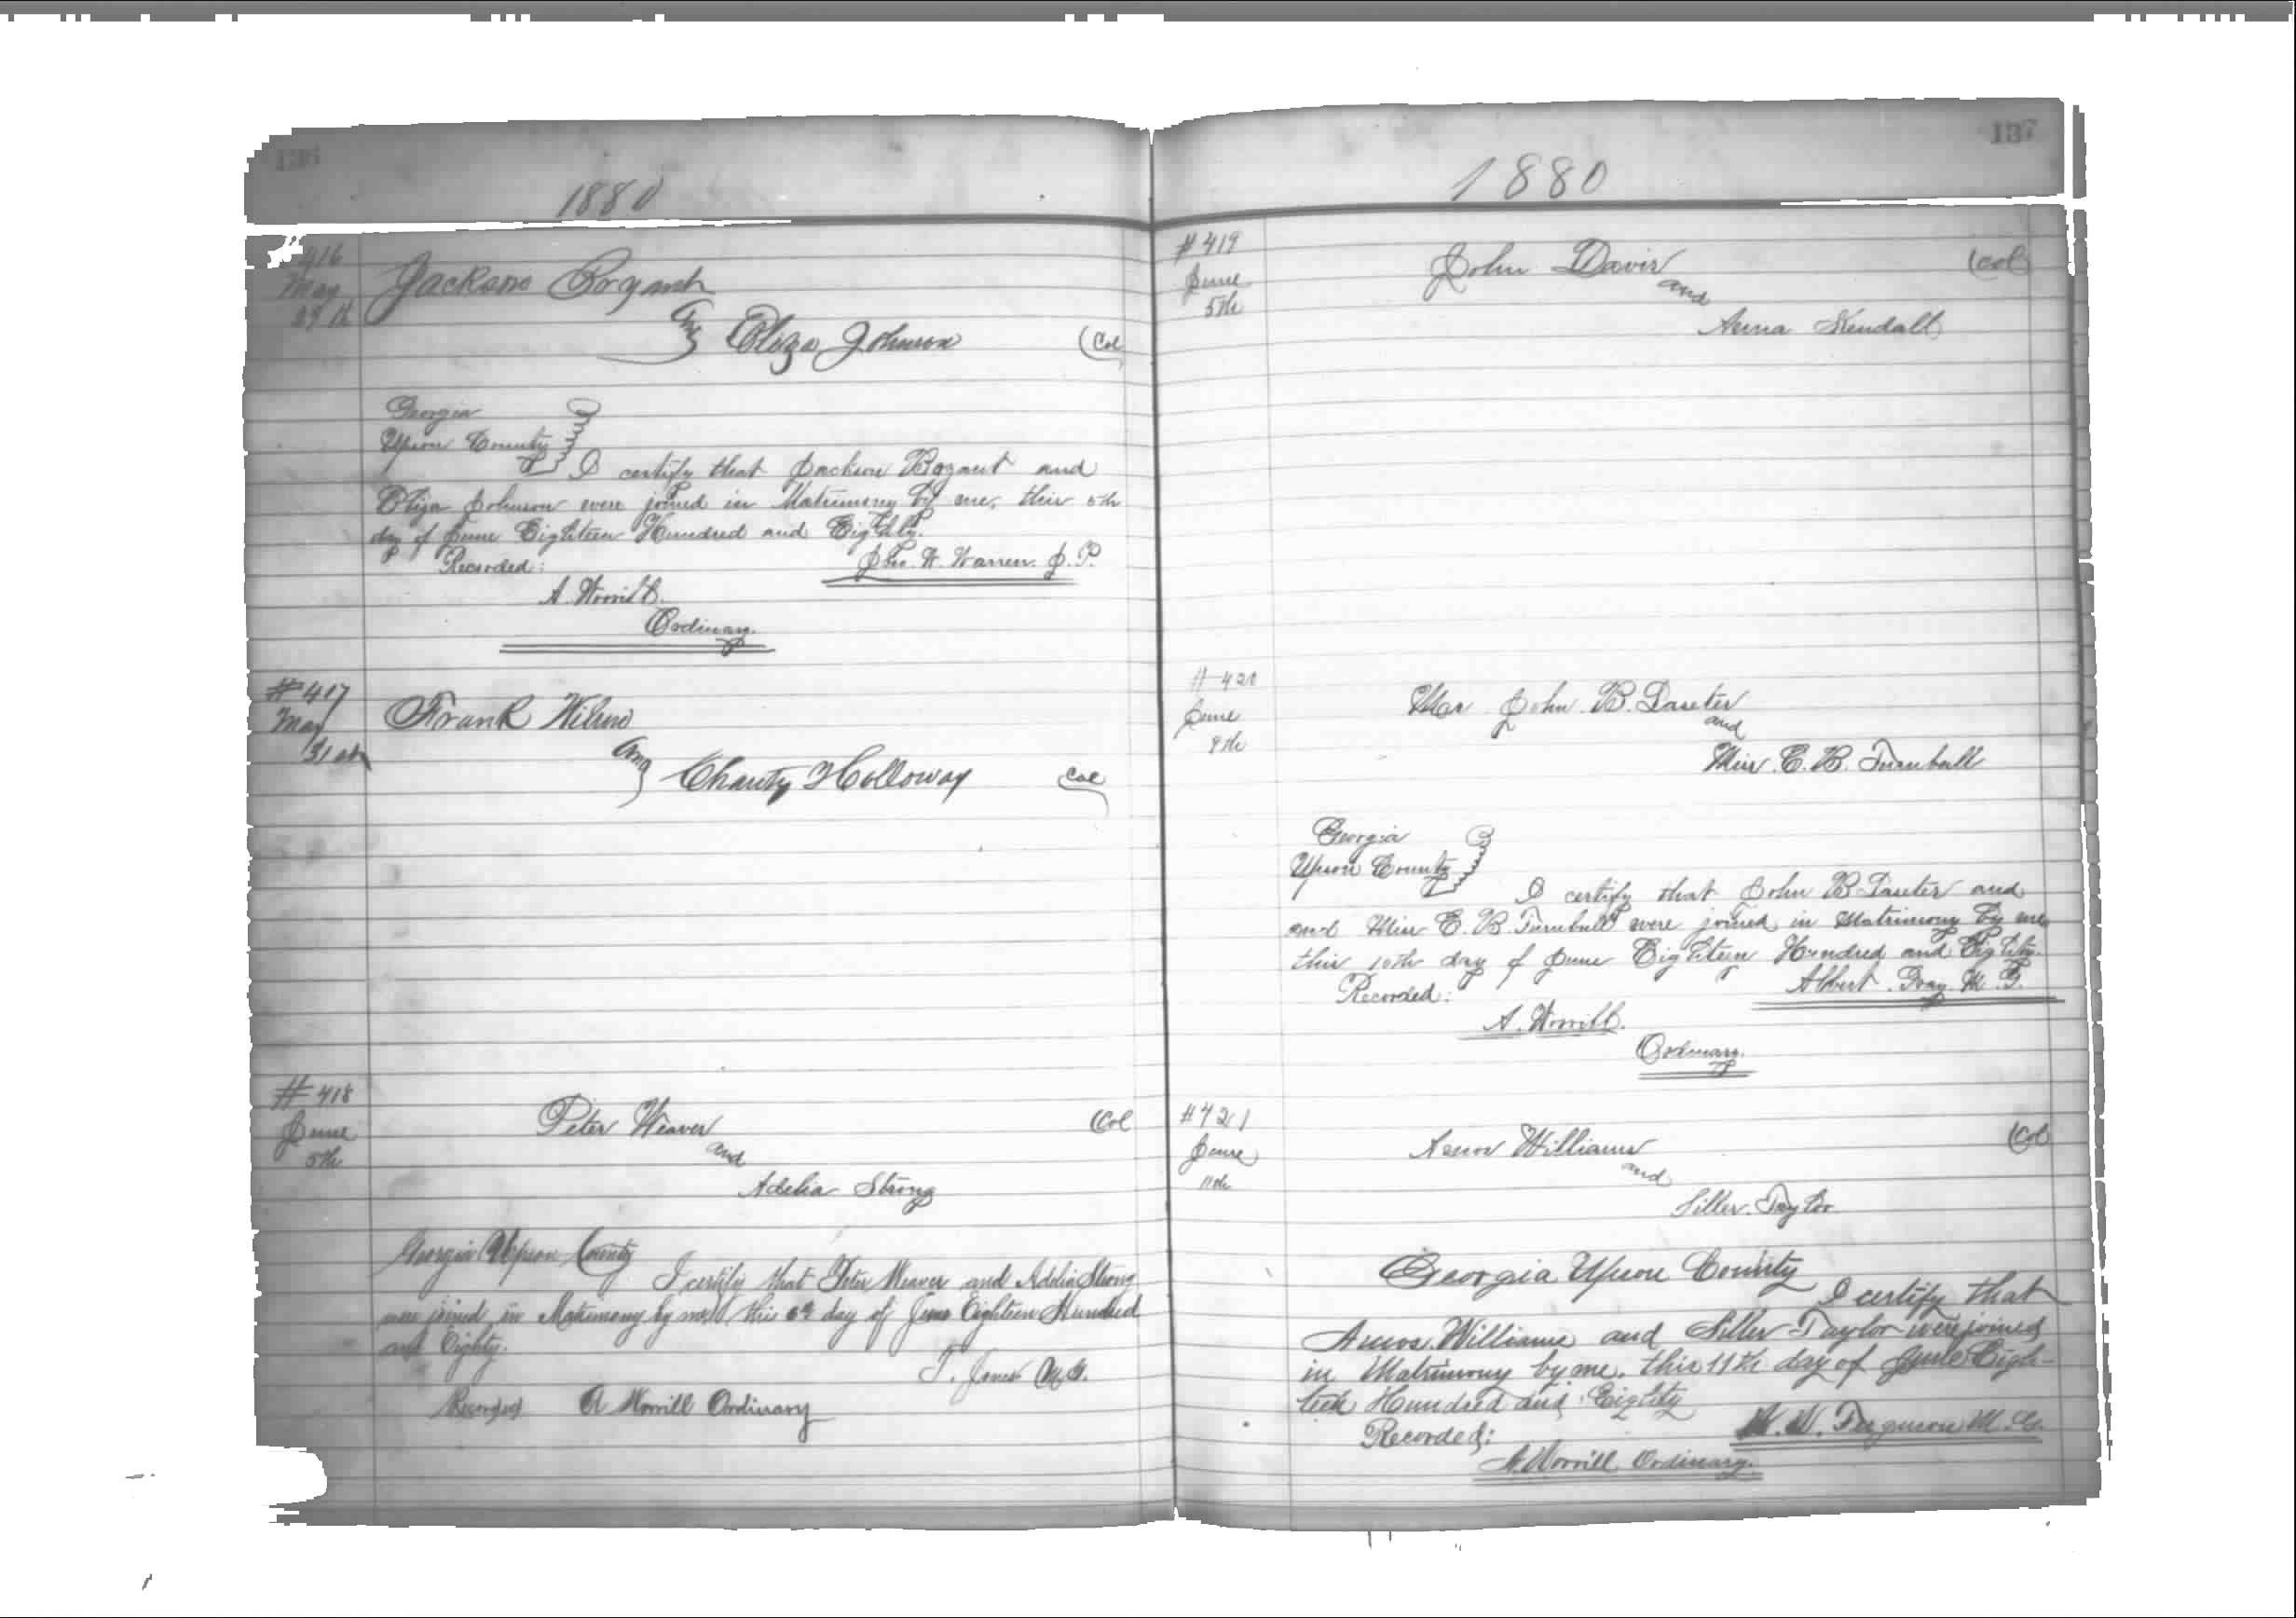 136
1880
416
May
29th
Jackson
and
Eliza Johnson
(Col
Georgia
Upson County
I certify that Jackson and
Eliza Johnson were joined in Matrimony by me, this 5th
day of June Eighteen Hundred and Eighty.
Recorded:
W. Warren J. P.
A. Worrill
Ordinary.
#417
May
31st
Frank Wilson
and
Charity Holloway
Col
#418
June
5th
Peter Weaver
(Col
and
Adelia Strong
Georgia Upson County
I certify that Peter Weaver and Adelia Strong
were joined in Matrimony by me, this 6th day of June Eighteen Hundred
and Eighty.
T. Jones M.G.
Recorded A Worrill Ordinary
137
1880
#419
June
5th
John Davis
(Col
and
Anna Kendall
# 420
June
9th
Mr John B.
and
Miss E. B. Turnbull
Georgia
Upson County
I certify that John B and
and Miss E. B. Turnbull were joined in Matrimony by me
this 10th day of June Eighteen Hundred and Eighty.
Recorded:
Albert Gray M. G.
A. Worrill.
Ordinary.
#421
June
11th
Amos Williams
(Col
and
Siller Taylor
Georgia Upson County
I certify that
Amos Williams and Siller Taylor were joined
in Matrimony by me, this 11th day of June Eigh-
teen Hundred and Eighty
Recorded:
W. W. Ferguson M. G.
A. Worrill Ordinary.